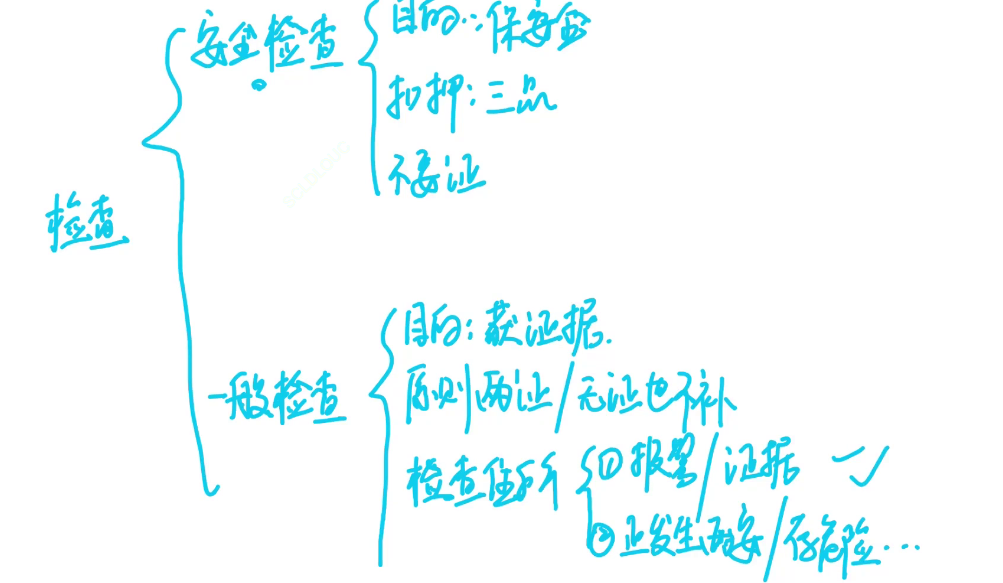 检查
安全检查
目的:保安全
扣押:三品
不要证
一般检查
目的:获证据.
原则两证/无证也不补
检查住所
①报警/证据
②正发生 /存危险...